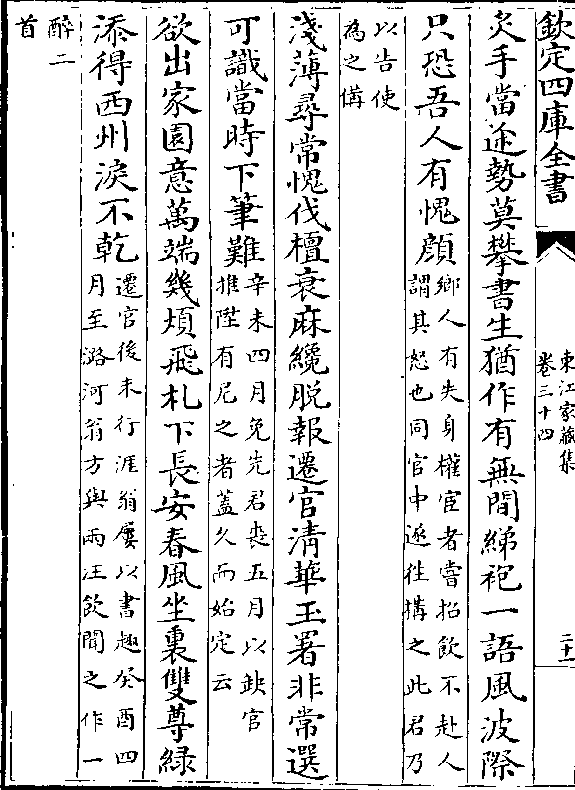 欽定四庫全書
東江家藏集
卷三十四
二十一
炙手當途勢莫攀書生猶作有無間綈袍一語風波際
只恐吾人有愧顔
鄉人有失身權宦者嘗招飲不赴人
謂其怒也同官中遂往搆之此君乃
以告使
為之備
淺薄尋常愧伐檀衰麻纔脫報遷官清華玉署非常選
可識當時下筆難
辛未四月免先君喪五月以缺官
推陞有尼之者蓋久而始定云
欲出家園意萬端幾煩飛札下長安春風坐裏雙尊緑
添得西州淚不乾
遷官後未行涯翁屢以書趣癸酉四
月至潞河翁方與兩汪飲聞之作一
醉二
首